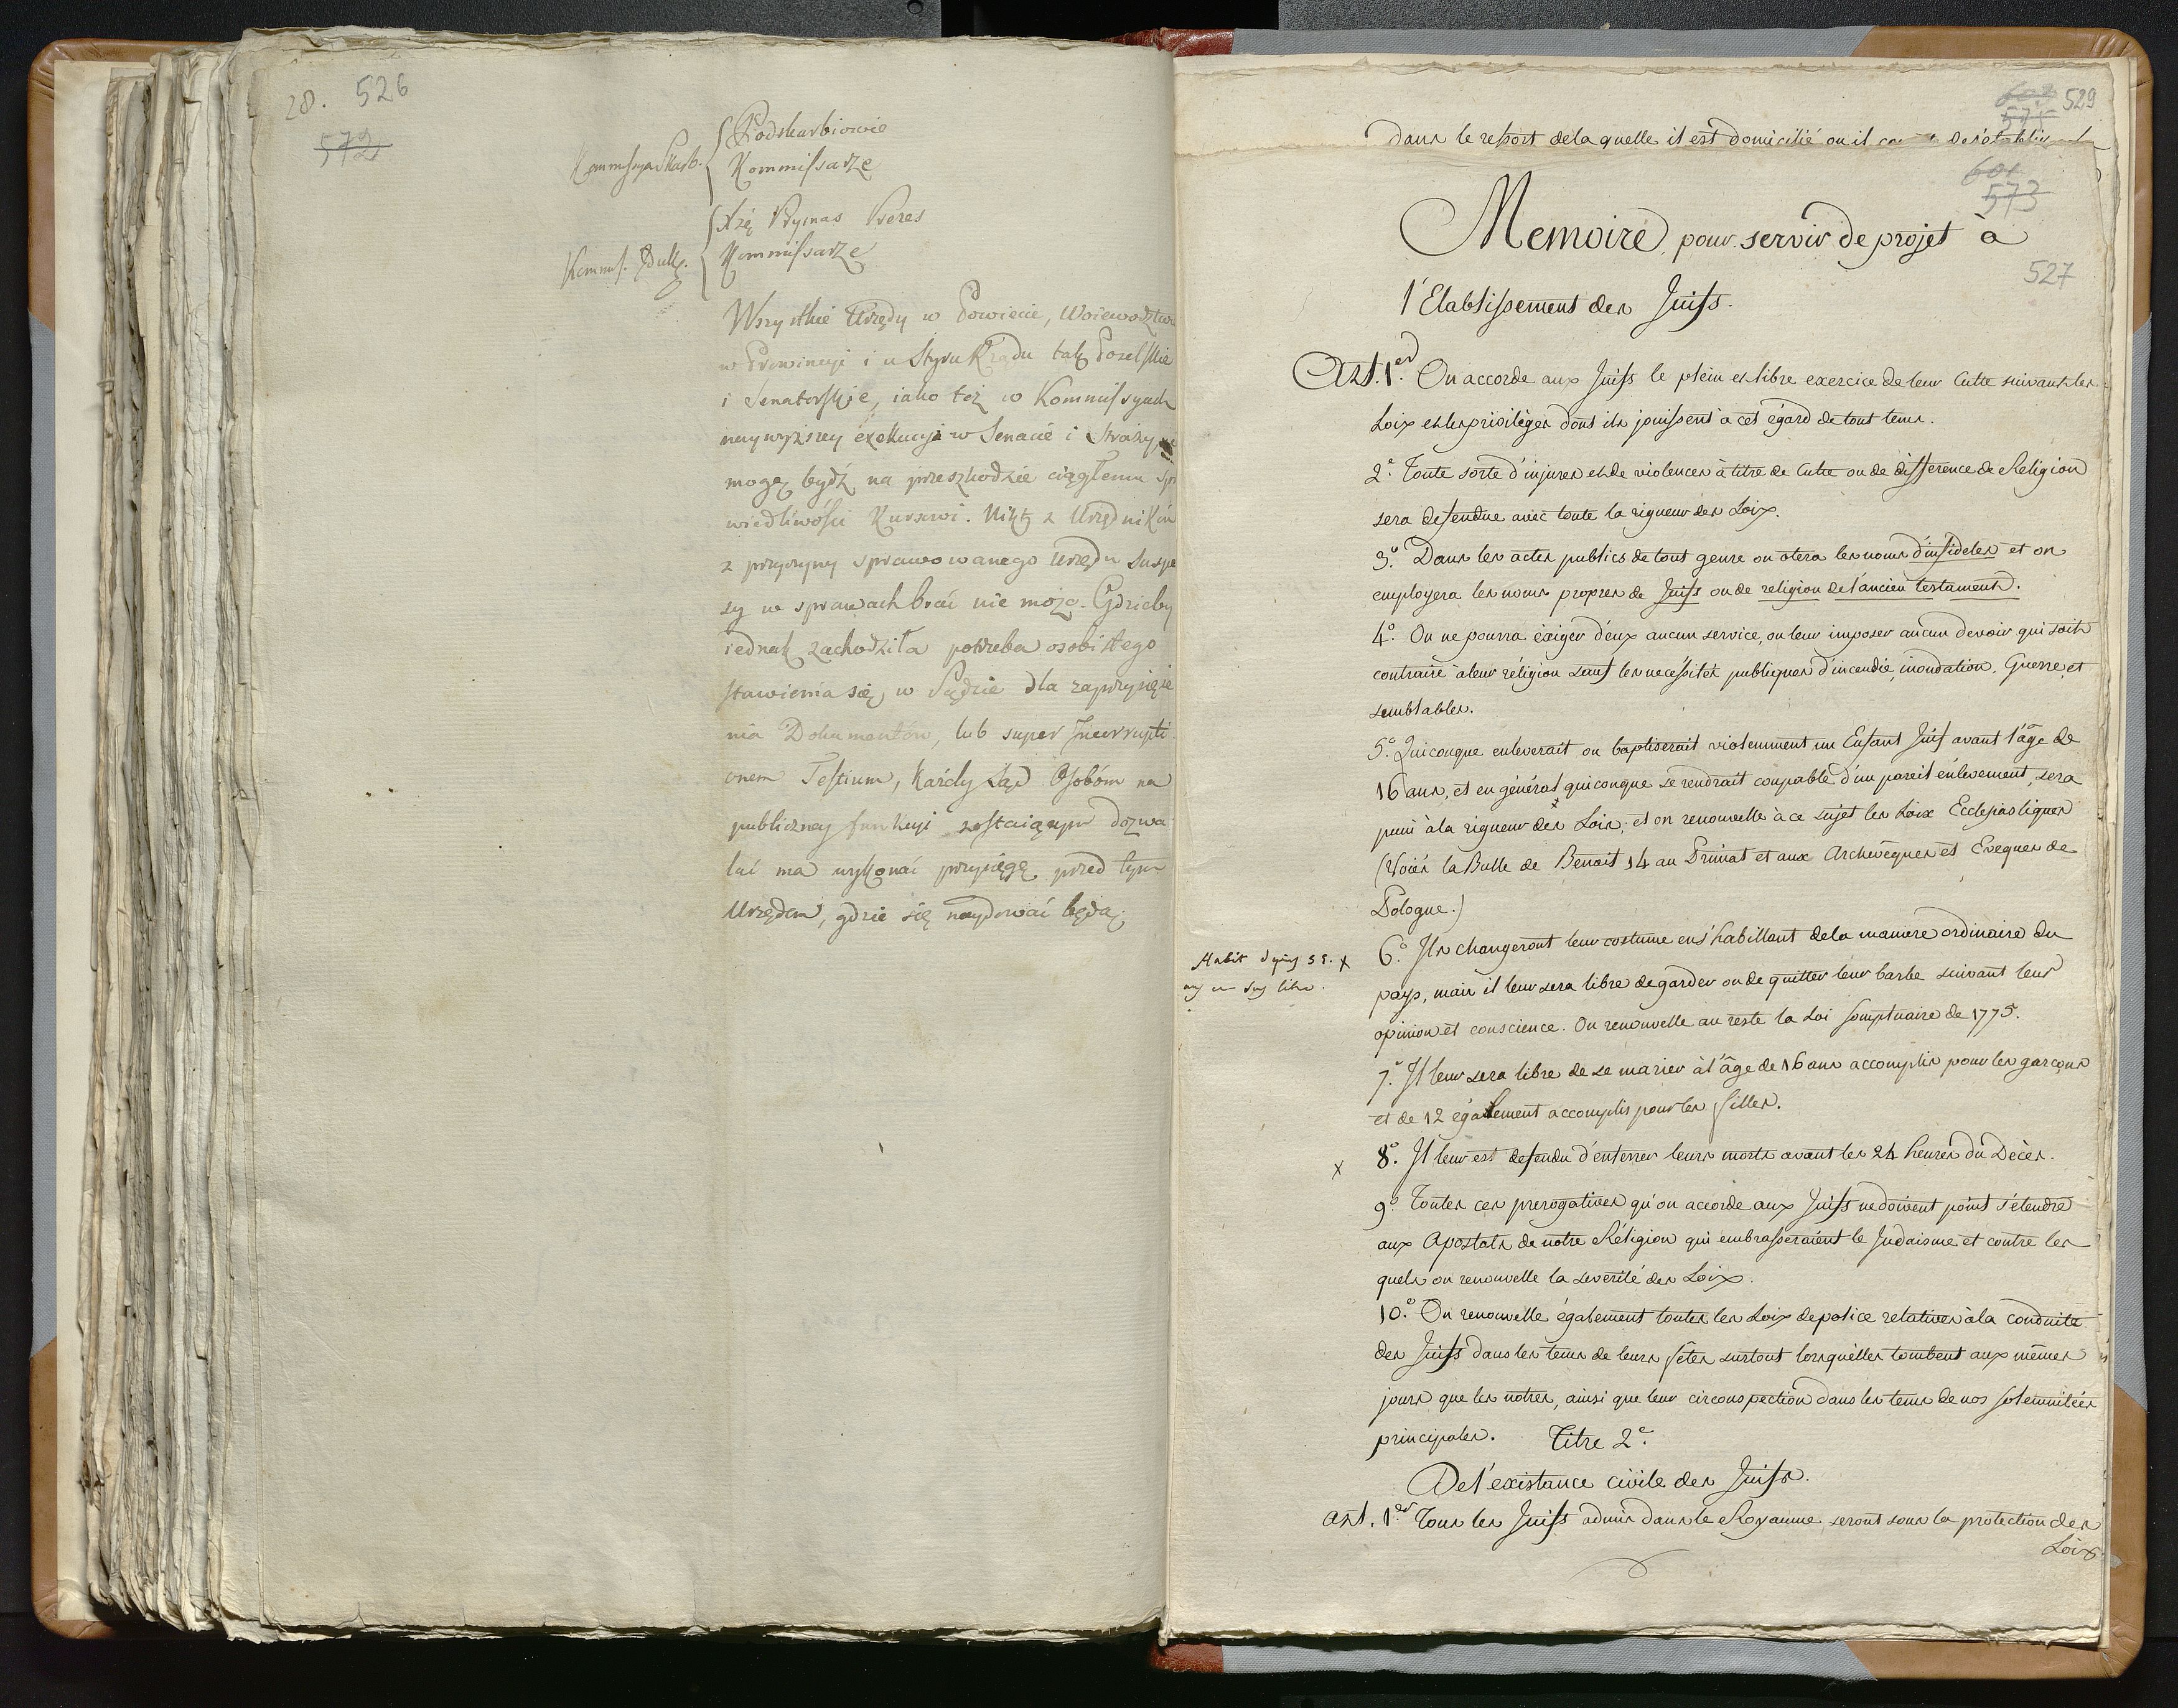 28. 526
572
Kommissya Skarb.
Podskarbiowie
Kommissarze
Xżę Prymas Prezes
Kommis. Eduk.
Kommissarze
Wszystkie Urzędy w Powiecie, Woiewodztwie
w Prowincyi i u Styru Rządu tak Poselskie
i Senatorskie, iako też w Kommissyach
naywyższey exekucyi w Senacie i Straży
mogą bydź na przeszkodzie ciągłemu spr
wiedliwości Kursowi. Nikt z Urzędników
z przyczyny sprawowanego Urzędu suspe
sy w sprawach brać nie może. Gdzieby
iednak zachodziła potrzeba osobistego
stawienia się w Sądzie dla zaprzysięże
nia Dokumentów, lub super Incorrupti
onem Testium, każdy Sąd Osobóm na
publiczney funkcyi zostaiącym dozwa
lać ma wykonać przysięgę przed tym
Urzędem, gdzie się naydować będą.
603 529
575
Dans le ressort de la quelle il est domicilié ou il
601
573
Memoire pour servir de projet à
527
l'Etablissement des Juifs.
Art. 1.er On accorde aux Juifs le plein et libre exercice de leur Culte suivant les
Loix et les privilèges dont ils jouissent à cet égard de tout tems.
2.e Toute sorte d'injures et de violences à titre de Culte ou de difference de Religion
sera defendue avec toute la rigueur des Loix.
3.o Dans les actes publics de tout genre on otera les noms d'infideles et on
employera les noms propres de Juifs ou de religion de l'ancien testament.
4.o On ne pourra éxiger d'eux aucun service, ou leur imposer aucun devoir qui soit
contraire à leur réligion sauf les necéssités publiques d'incendie, inondation, Guerre et
semblables.
5.o Quiconque enleverait ou baptiserait violemment un Enfant Juif avant l'âge de
16 ans, et en général quiconque se rendrait coupable d'un pareil enlevement, sera
puni à la rigueur des Loix, et on renouvelle à ce sujet les Loix Ecclesiastiques
(Voiés la Bulle de Benoit 14 au Primat et aux Archevêques et Eveques de
Pologne.)
Habit
x
6.o Ils changeront leur costume en s'habillant de la maniere ordinaire du
pays, mais il leur sera libre de garder ou de quitter leur barbe suivant leur
opinion et conscience. On renouvelle au reste la Loi somptuaire de 1775.
7.o Il leur sera libre de se marier à l'âge de 16 ans accomplis pour les garçons
et de 12 également accomplis pour les filles.
x 8.o Il leur est defendu d'enterrer leurs morts avant les 24 heures du Décès.
9.o Toutes ces prerogatives qu'on accorde aux Juifs ne doivent point s'étendre
aux Apostats de notre Réligion qui embrasseraient le Judaisme et contre les
quels on renouvelle la severité des Loix.
10.o On renouvelle également toutes les Loix de police relatives à la conduite
des Juifs dans les tems de leurs fêtes surtout lorsquelles tombent aux mêmes
jours que les notres, ainsi que leur circonspection dans les tems de nos solemnitées
principales. Titre 2.e
De l'existance civile des Juifs.
Art. 1.er Tous les Juifs admis dans le Royaume seront sous la protection des
Loix